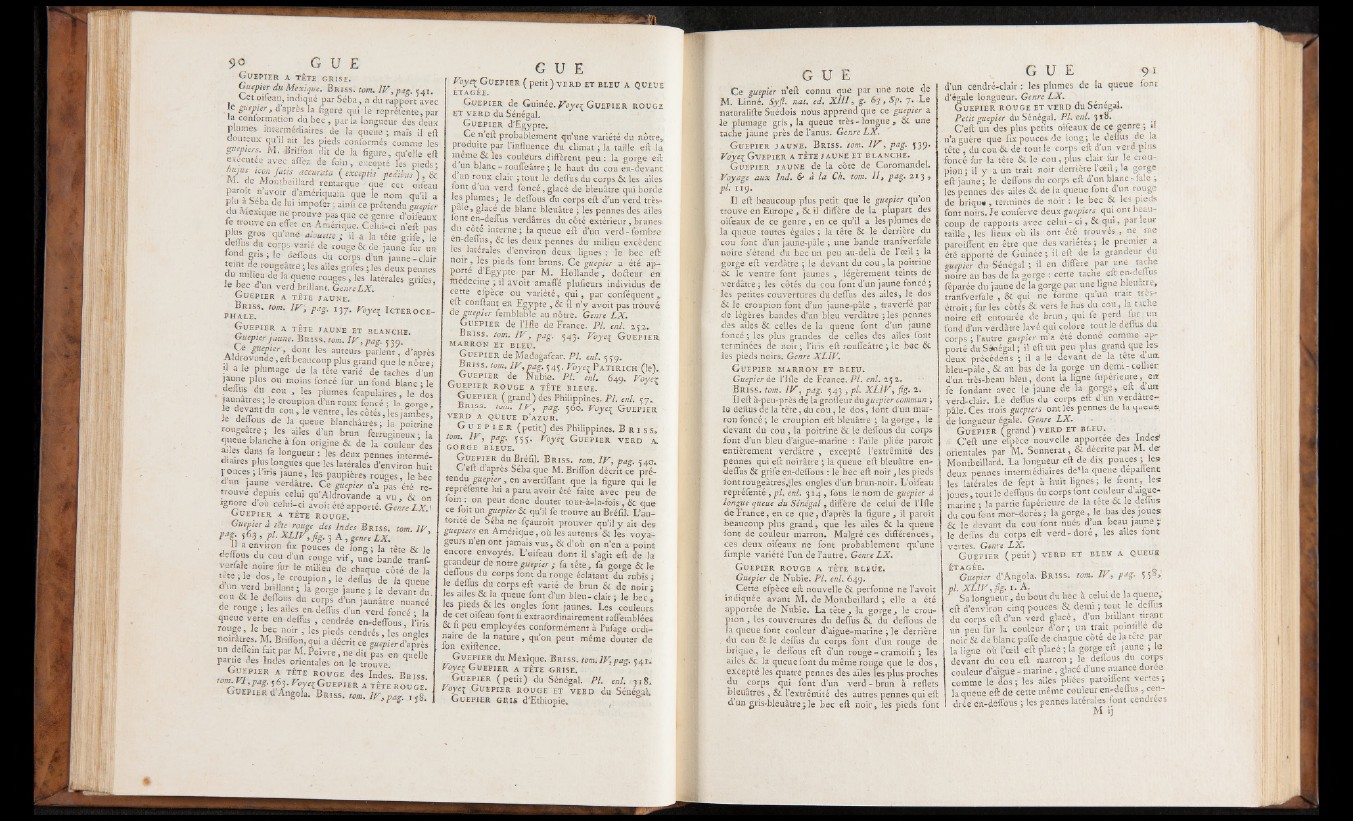 90 G U E
GUEPIER A TÊTE GRISE.
Guepier du Mexique. BRISS. tom. IV, pag. 541.
Cet oiseau, indiqué par Séba, a du rapport avec
le guepier, d'après la figure qui le représente, par
la conformation du bec, par la longueur des deux
plumes intermédiaires de la queue ; mais il est
douteux qu'il ait les pieds conformés comme les
guepiers. M. Brisson dit de la figure, qu'elle est
exécutée avec assez de soin, excepté les pieds ;
hujus icon satis accurata (exceptis pedibus), &
M. de Montbeillard remarque que cet oiseau
paroît n'avoir d'américain que le nom qu'il a
plu à Séba de lui imposer ; ainsi ce prétendu guepier
du Mexique ne prouve pas que ce genre d'oiseaux
se trouve en effet en Amérique. Celui-ci n'est pas
plus gros qu'une alouette ; il a la tête grise, le
dessus du corps varié de rouge & de jaune sur un
fond gris ; le dessous du corps d'un jaune-clair
teint de rougeâtre ; les ailes grises ; les deux pennes
du milieu de la queue rouges, les latérales grises,
le bec d'un verd brillant. Genre LX.
GUEPIER A TÊTE JAUNE.
BRISS. tom. IV, pag. 137. Voyez ICTEROCE-
PHALE.
GUEPIER A TÊTE JAUNE ET BLANCHE.
Guepier jaune. BRISS. tom. IV, pag. 539.
Ce guepier, dont les auteurs parlent, d'après
Aldrovande, est beaucoup plus grand que le nôtre;
il a le plumage de la tête varié de taches d'un
jaune plus ou moins foncé sur un fond blanc ; le
dessus du cou, les plumes scapulaires, le dos
jaunâtres ; le croupion d'un roux foncé ; la gorge,
le devant du cou, le ventre, les côtés, les jambes,
le dessous de la queue blanchâtres ; la poitrine
rougeâtre ; les ailes d'un brun ferrugineux ; la
queue blanche à son origine & de la couleur des
ailes dans sa longueur : les deux pennes intermé-
diaires plus longues que les latérales d'environ huit
pouces ; l'iris jaune, les paupières rouges, le bec
d'un jaune verdâtre. Ce guepier n'a pas été re-
trouvé depuis celui qu'Aldrovande a vu, & on
ignore d'où celui-ci avoit été apporté. Genre LX.
GUEPIER A TÊTE ROUGE.
Guepier à tête rouge des Indes BRISS. tom. IV,
pag. 563, pl. XLIV, fig. 3 A, genre LX.
Il a environ six pouces de long ; la tête & le
dessous du cou d'un rouge vif, une bande trans-
versale noire sur le milieu de chaque côté de la
tête, le dos, le croupion, le dessus de la queue
d'un verd brillant ; la gorge jaune ; le devant du
cou & le dessous du corps d'un jaunâtre nuancé
de rouge ; les ailes en-dessus d'un verd foncé ; la
queue verte en-dessus, cendrée en-dessous, l'iris
rouge, le bec noir, les pieds cendrés, les ongles
noirâtres. M. Brisson, qui a décrit ce guepier d'après
un dessein fait par M. Poivre, ne dit pas en quelle
partie des Indes orientales on le trouve.
GUEPIER A TÊTE ROUGE des Indes. BRISS.
tom. VI, pag. 563. Voyez GUEPIER A TÊTE ROUGE.
GUEPIER d'Angola. BRISS. tom. IV, pag. 158.
G U E
Voyez GUEPIER (petit) VERD ET BLEU A QUEUE
ETAGÉE.
GUEPIER de Guinée. Voyez GUEPIER ROUGE
ET VERD du Sénégal.
GUEPIER d'Egypte.
Ce n'est probablement qu'une variété du nôtre,
produite par l'influence du climat ; la taille est la
même & les couleurs diffèrent peu : la gorge est
d'un blanc-roussеâtre ; le haut du cou en-devant
d'un roux clair ; tout le dessus du corps & les ailes
sont d'un verd foncé, glacé de bleuâtre qui borde
les plumes ; le dessous du corps est d'un verd très-
pâle, glacé de blanc bleuâtre ; les pennes des ailes
sont en-dessus verdâtres du côté extérieur, brunes
du côté interne ; la queue est d'un verd-sombre
en-dessus, & les deux pennes du milieu excèdent
les latérales d'environ deux lignes : le bec est
noir, les pieds sont bruns. Ce guepier a été ap-
porté d'Egypte par M. Hollande, docteur en
médecine ; il avoit amassé plusieurs individus de
cette espèce ou variété, qui, par conséquent,
est constant en Egypte, & il n'y avoit pas trouvé
de guepier semblable au nôtre. Genre LX.
GUEPIER de l'Isle de France. Pl. enl. 252.
BRISS. tom. IV, pag. 543. Voyez GUEPIER
MARRON ET BLEU.
GUEPIER de Madagascar. Pl. enl. 559.
BRISS. tom. IV, pag. 545. Voyez PATIRICH (le).
GUEPIER de Nubie. Pl. enl. 649. Voyez
GUEPIER ROUGE A TÊTE BLEUE.
GUEPIER (grand) des Philippines. Pl. enl. 57.
BRISS. tom. IV, pag. 560. Voyez GUEPIER
VERD A QUEUE D'AZUR.
GUEPIER (petit) des Philippines. BRISS.
tom. IV, pag. 555. Voyez GUEPIER VERD A
GORGE BLEUE.
GUEPIER du Brésil. BRISS. tom. IV, pag. 540.
C'est d'après Séba que M. Brisson décrit ce pré-
tendu guepier, en avertissant que la figure qui le
représente lui a paru avoir été faite avec peu de
soin : on peut donc douter tout-à-la-fois, & que
ce soit un guepier & qu'il se trouve au Brésil. L'au-
torité de Séba ne sçauroit prouver qu'il y ait des
guepiers en Amérique, où les auteurs & les voya-
geurs n'en ont jamais vus, & d'où on n'en a point
encore envoyés. L'oiseau dont il s'agit est de la
grandeur de notre guepier ; sa tête, sa gorge & le
dessous du corps sont du rouge éclatant du rubis ;
le dessus du corps est varié de brun & de noir ;
les ailes & la queue sont d'un bleu-clair ; le bec,
les pieds & les ongles sont jaunes. Les couleurs
de cet oiseau sont si extraordinairement rassemblées
& si peu employées conformément à l'usage ordi-
naire de la nature, qu'on peut même douter de
son existence.
GUEPIER du Mexique. BRISS. tom. IV, pag. 541.
Voyez GUEPIER A TÊTE GRISE.
GUEPIER (petit) du Sénégal. Pl. enl. 318.
Voyez GUEPIER ROUGE ET VERD du Sénégal.
GUEPIER GRIS d'Ethiopie.
G U E
Ce guepier n'est connu que par une note de
M. Linné. Syst. nat. ed. XIII, g. 63, Sp. 7. Le
naturaliste Suédois nous apprend que ce guepier a
le plumage gris, la queue très-longue, & une
tache jaune près de l'anus. Genre LX.
GUEPIER JAUNE. BRISS. tom. IV, pag. 539.
Voyez GUEPIER A TÊTE JAUNE ET BLANCHE.
GUEPIER JAUNE de la côte de Coromandel.
Voyage aux Ind. & à la Ch. tom. II, pag. 213,
pl. 119.
Il est beaucoup plus petit que le guepier qu'on
trouve en Europe, & il diffère de la plupart des
oiseaux de ce genre, en ce qu'il a les plumes de
la queue toutes égales ; la tête & le derrière du
cou sont d'un jaune-pâle ; une bande transversale
noire s'étend du bec un peu au-delà de l'œil ; la
gorge est verdâtre ; le devant du cou, la poitrine
& le ventre sont jaunes, légèrement teints de
verdâtre ; les côtés du cou sont d'un jaune foncé ;
les petites couvertures du dessus des ailes, le dos
& le croupion sont d'un jaune-pâle, traversé par
de légères bandes d'un bleu verdâtre ; les pennes
des ailes & celles de la queue sont d'un jaune
foncé ; les plus grandes de celles des ailes sont
terminées de noir ; l'iris est rousseâtre ; le bec &
les pieds noirs. Genre XLIV.
GUEPIER MARRON ET BLEU.
Guepier de l'Isle de France. Pl. enl. 252.
BRISS. tom. IV, pag. 543, pl. XLIV, fig. 2.
Il est à-peu-près de la grosseur du guepier commun ;
le dessus de la tête, du cou, le dos, sont d'un mar-
ron foncé ; le croupion est bleuâtre ; la gorge, le
devant du cou, la poitrine & le dessous du corps
sont d'un bleu d'aigue-marine : l'aîle pliée paroît
entièrement verdâtre, excepté l'extrêmité des
pennes qui est noirâtre ; la queue est bleuâtre en-
dessus & grise en-dessous : le bec est noir, les pieds
sont rougeâtres, les ongles d'un brun-noir. L'oiseau
représenté, pl. enl. 314, sous le nom de guepier à
longue queue du Sénégal, diffère de celui de l'Isle
de France, en ce que, d'après la figure, il paroît
beaucoup plus grand, que les ailes & la queue
sont de couleur marron. Malgré ces différences,
ces deux oiseaux ne sont probablement qu'une
simple variété l'un de l'autre. Genre LX.
GUEPIER ROUGE A TÊTE BLEUE.
Guepier de Nubie. Pl. enl. 649.
Cette espèce est nouvelle & personne ne l'avoit
indiquée avant M. de Montbeillard ; elle a été
apportée de Nubie. La tête, la gorge, le crou-
pion, les couvertures du dessus & du dessous de
la queue sont couleur d'aigue-marine ; le derrière
du cou & le dessus du corps sont d'un rouge de
brique, le dessous est d'un rouge-cramoisi ; les
ailes & la queue sont du même rouge que le dos,
excepté les quatre pennes des ailes les plus proches
du corps qui sont d'un verd-brun à reflets
bleuâtres, & l'extrêmité des autres pennes qui est
d'un gris-bleuâtre ; le bec est noir, les pieds sont
G U E 91
d'un cendré-clair : les plumes de la queue sont
d'égale longueur. Genre LX.
GUEPIER ROUGE ET VERD du Sénégal.
Petit guepier du Sénégal. Pl. enl. 318.
C'est un des plus petits oiseaux de ce genre ; il
n'a guère que six pouces de long ; le dessus de la
tête, du cou & de tout le corps est d'un verd plus
foncé sur la tête & le cou, plus clair sur le crou-
pion ; il y a un trait noir derrière l'œil ; la gorge
est jaune ; le dessous du corps est d'un blanc-sale ;
les pennes des ailes & de la queue sont d'un rouge
de brique, terminés de noir : le bec & les pieds
sont noirs. Je conserve deux guepiers qui ont beau-
coup de rapports avec celui-ci, & qui, par leur
taille, les lieux où ils ont été trouvés, ne me
paroissent en être que des variétés ; le premier a
été apporté de Guinée ; il est de la grandeur du
guepier du Sénégal ; il en diffère par une tache
noire au bas de la gorge : cette tache est en-dessus
séparée du jaune de la gorge par une ligne bleuâtre,
transversale, & qui ne forme qu'un trait très-
étroit ; sur les côtés & vers le bas du cou, la tache
noire est entourée de brun, qui se perd sur un
fond d'un verdâtre lavé qui colore tout le dessus du
corps ; l'autre guepier m'a été donné comme ap-
porté du Sénégal ; il est un peu plus grand que les
deux précédens ; il a le devant de la tête d'un
bleu-pâle, & au bas de la gorge un demi-collier
d'un très-beau bleu, dont la ligne supérieure, en
se fondant avec le jaune de la gorge, est d'un
verd-clair. Le dessus du corps est d'un verdâtre-
pâle. Ces trois guepiers ont les pennes de la queue
de longueur égale. Genre LX.
GUEPIER (grand) VERD ET BLEU.
C'est une espèce nouvelle apportée des Indes
orientales par M. Sonnerat, & décrite par M. de
Montbeillard. La longueur est de dix pouces ; les
deux pennes intermédiaires de la queue dépassent
les latérales de sept à huit lignes ; le front, les
joues, tout le dessous du corps sont couleur d'aigue-
marine ; la partie supérieure de la tête & le dessus
du cou sont mor-dorés ; la gorge, le bas des joues
& le devant du cou sont nués d'un beau jaune ;
le dessus du corps est verd-doré, les ailes sont
vertes. Genre LX.
GUEPIER (petit) VERD ET BLEU A QUEUE
ÉTAGÉE.
Guepier d'Angola. BRISS. tom. IV, pag. 558,
pl. XLIV, fig. 1. A.
Sa longueur, du bout du bec à celui de la queue,
est d'environ cinq pouces & demi ; tout le dessus
du corps est d'un verd glacé, d'un brillant tirant
un peu sur la couleur d'or ; un trait pointillé de
noir & de blanc passe de chaque côté de la tête par
la ligne où l'œil est placé ; la gorge est jaune ; le
devant du cou est marron ; le dessous du corps
couleur d'aigue-marine, glacé d'une nuance dorée
comme le dos ; les ailes pliées paroissent vertes ;
la queue est de cette même couleur en-dessus, cen-
drée en-dessous ; les pennes latérales sont cendrées
M ij